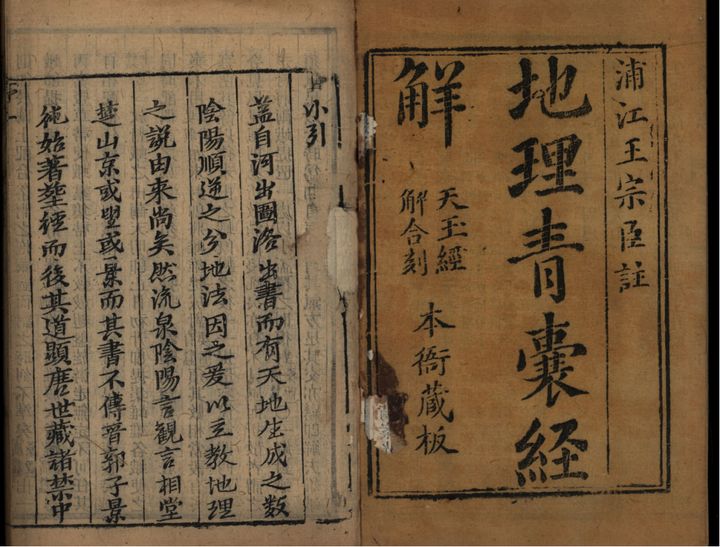 浦江王宗臣註
地理青囊経
解
天玉經
解合刻
本衙蔵板
小引
蓋自河出圖洛出書而有天地生成之数
陰陽順逆之分地法因之爰以立教地理
之説由来尚矣然流泉陰陽言観言相堂
楚山京或望或景而其書不傳晉郭子景
純始著塟經而後其道顯唐世藏諸禁中